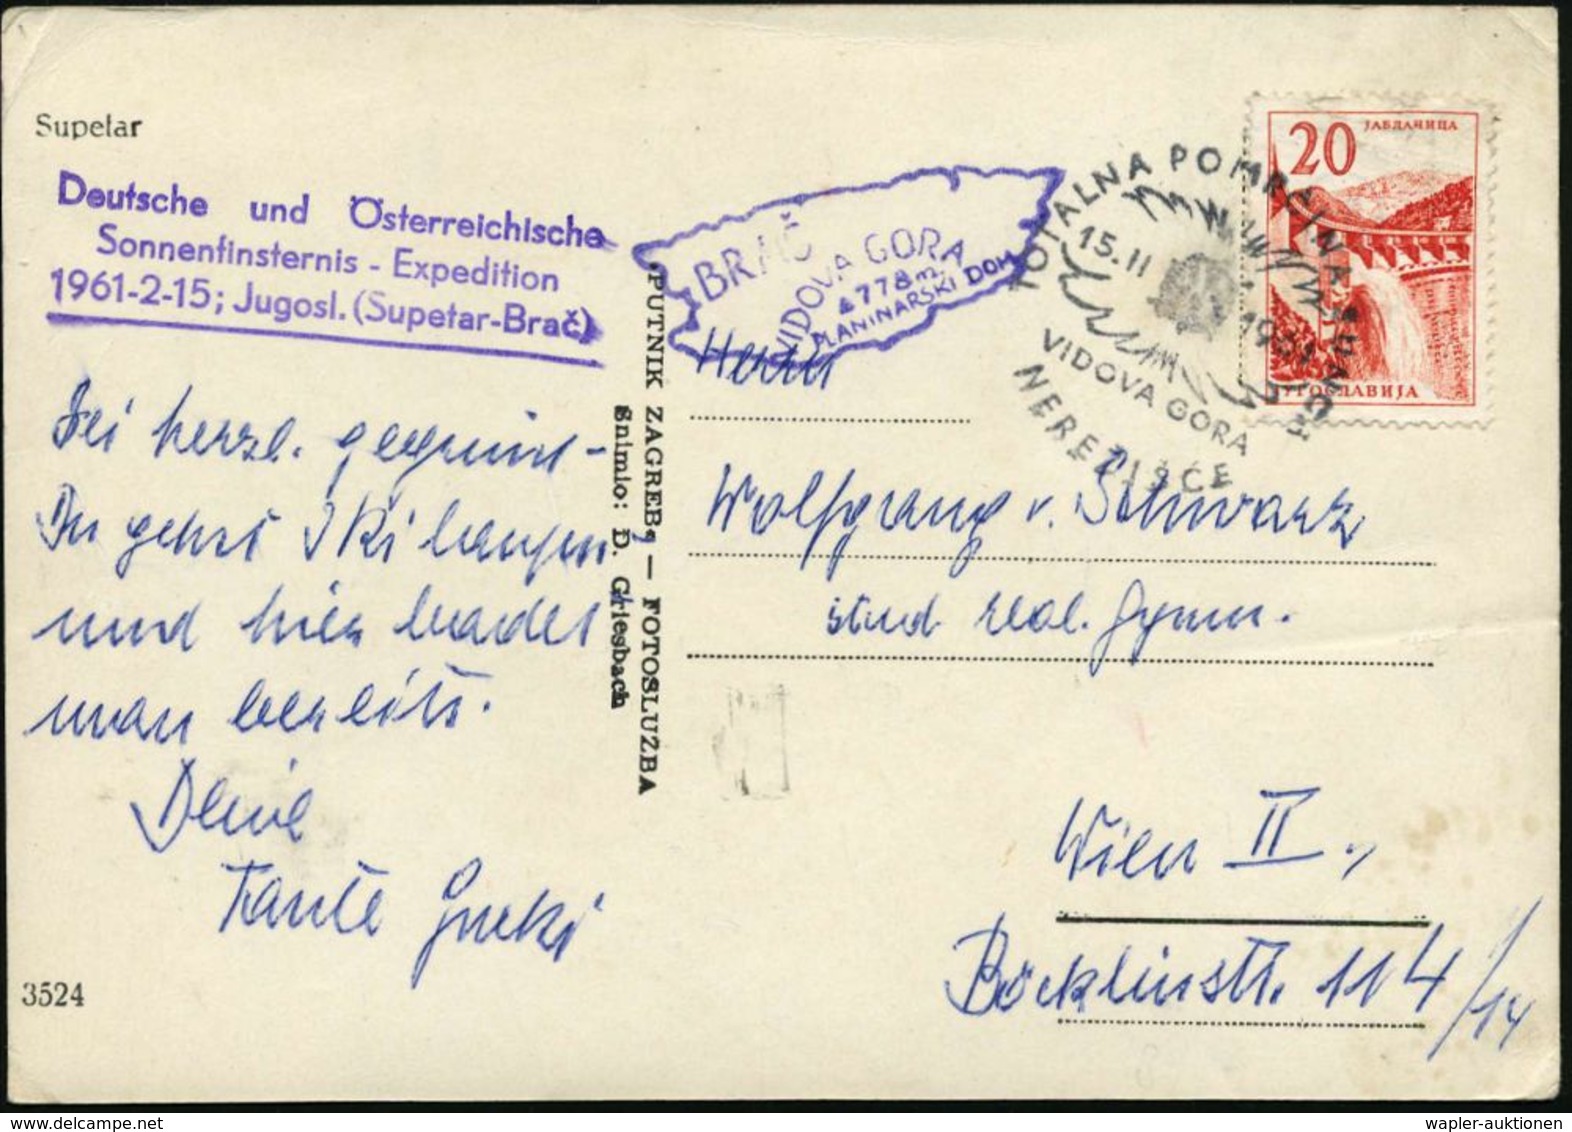 Supetar
Deutsche und Österreichische
Sonnenfinsternis - Expedition
1961-2-15; Jugosl. (Supetar-Brač)
BRAČ
VIDOVA GORA
778 m.
PLANINARSKI DOM
TOTALNA POMRČINA SUNCA
15. II
1961
VIDOVA GORA
NEREŽIŠĆE
20
ЈАБЛАНИЦА
ЈУГОСЛАВИЈА
Sei herzl. gegrüßt -
Du gehst Ski laufen
und hier badet
man bereits.
Deine
Tante
PUTNIK ZAGREB, — FOTOSLUŽBA
Snimio: D. Griesbach
Herrn
Wolfgang v. Schwarz
stud. real. Gymn.
Wien II.,
Böcklinstr. 114/14
3524
wapler-auktionen